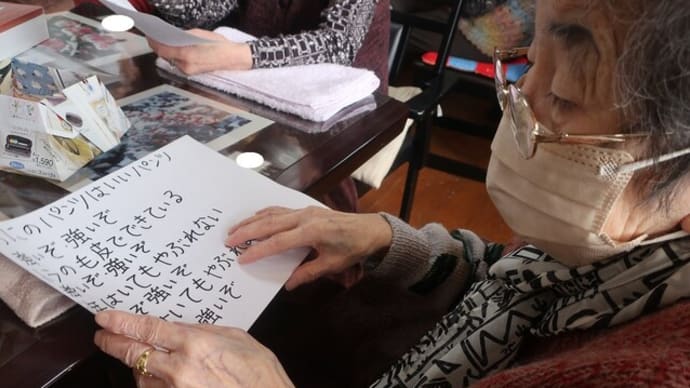 のパンツはいいパンツ
ぞ 強いぞ
の毛皮でできている
ぞ 強いぞ
はいてもやぶれない
ぞ 強いぞ
いてもやぶれ
強いぞ
1,590